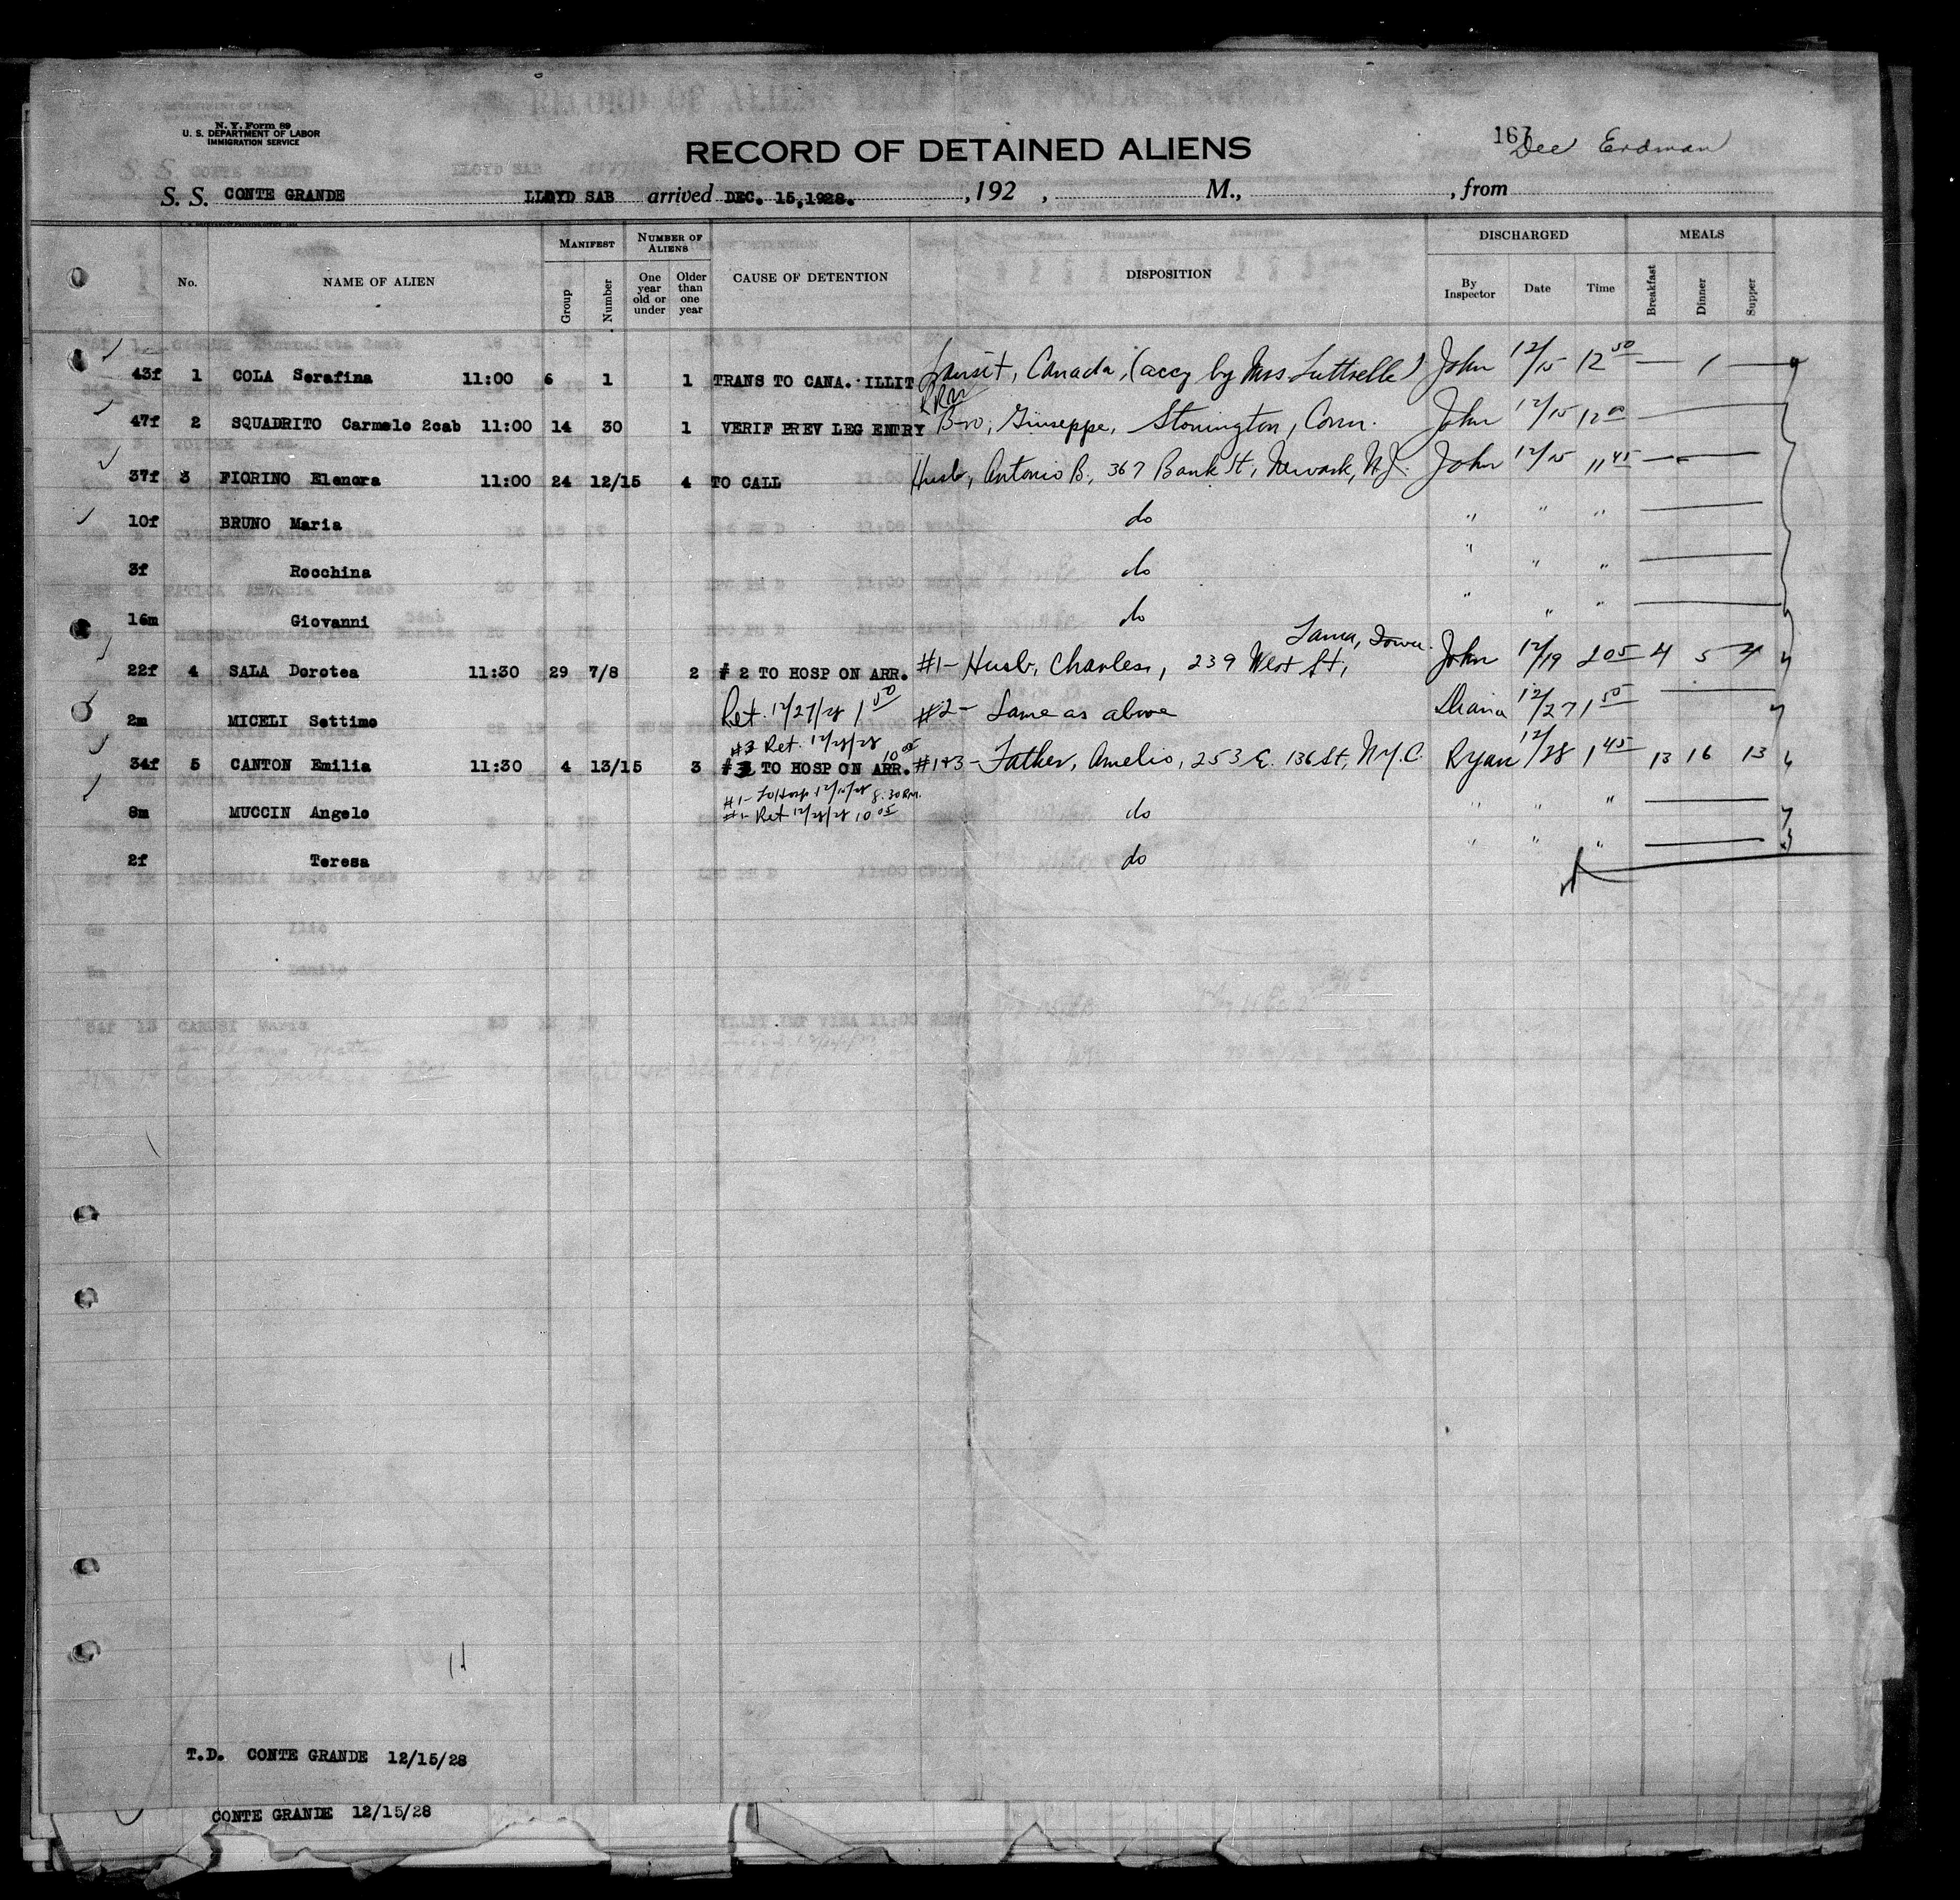 N. Y. Form 89
U. S. DEPARTMENT OF LABOR
IMMIGRATION SERVICE
RECORD OF DETAINED ALIENS
167 Dee Erdman
S. S. CONTE GRANDE LLOYD SAB arrived DEC. 15,1928. , 192 , M., , from
No. NAME OF ALIEN MANIFEST Group Number NUMBER OF ALIENS One year old or under Older than one year CAUSE OF DETENTION DISPOSITION DISCHARGED By Inspector Date Time MEALS Breakfast Dinner Supper
43f 1 COLA Serafina 11:00 6 1 1 TRANS TO CANA. ILLIT Transit, Canada, (accy by Mrs Luttrelle) John 12/15 12 50 — 1 —
47f 2 SQUADRITO Carmelo 2cab 11:00 14 30 1 VERIF PREV LEG ENTRY Bro, Giuseppe, Stonington, Conn. John 12/15 12 00
37f 3 FIORINO Elenora 11:00 24 12/15 4 TO CALL Husb, Antonio B, 367 Bank St, Newark, N.J. John 12/15 11 45
10f BRUNO Maria do " " "
3f Rocchina do " " "
16m Giovanni do " " "
22f 4 SALA Dorotea 11:30 29 7/8 2 # 2 TO HOSP ON ARR. #1- Husb, Charles, 239 West St, Tama, Iowa. John 12/19 2 05 4 5 4
2m MICELI Settimo Ret. 12/27/28 1 50 #2- Same as above Diana 12/27 1 50
#3 Ret. 12/28/28 10 05
34f 5 CANTON Emilia 11:30 4 13/15 3 #3 TO HOSP ON ARR. #1+3- Father, Amelio, 253 E. 136 St, N.Y.C. Ryan 12/28 1 45 13 16 13
#1- To Hosp 12/15/28 8.30 P.M.
8m MUCCIN Angelo #1- Ret 12/28/28 10 05 do " " "
2f Teresa do " " "
11
T.D. CONTE GRANDE 12/15/28
CONTE GRANDE 12/15/28